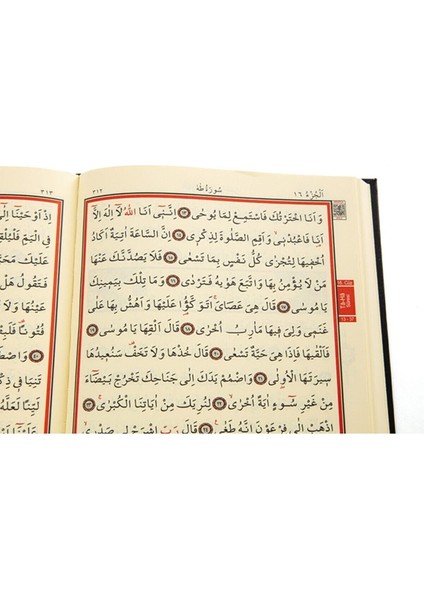 اَلْجُزْءُ ١٦
سُورَةُ طٰهٰ
٣١٢
وَاَنَا اخْتَرْتُكَ فَاسْتَمِعْ لِمَا يُوحٰى ﴿١٣﴾ اِنَّنٖٓي اَنَا اللّٰهُ لَٓا اِلٰهَ اِلَّٓا
اَنَا فَاعْبُدْنٖي وَاَقِمِ الصَّلٰوةَ لِذِكْرٖي ﴿١٤﴾ اِنَّ السَّاعَةَ اٰتِيَةٌ اَكَادُ
اُخْفٖيهَا لِتُجْزٰى كُلُّ نَفْسٍ بِمَا تَسْعٰى ﴿١٥﴾ فَلَا يَصُدَّنَّكَ عَنْهَا
مَنْ لَا يُؤْمِنُ بِهَا وَاتَّبَعَ هَوٰيهُ فَتَرْدٰى ﴿١٦﴾ وَمَا تِلْكَ بِيَمٖينِكَ
يَا مُوسٰى ﴿١٧﴾ قَالَ هِيَ عَصَايَ اَتَوَكَّؤُا عَلَيْهَا وَاَهُشُّ بِهَا عَلٰى
غَنَمٖي وَلِيَ فٖيهَا مَاٰرِبُ اُخْرٰى ﴿١٨﴾ قَالَ اَلْقِهَا يَا مُوسٰى ﴿١٩﴾
فَاَلْقٰيهَا فَاِذَا هِيَ حَيَّةٌ تَسْعٰى ﴿٢٠﴾ قَالَ خُذْهَا وَلَا تَخَفْ سَنُعٖيدُهَا
سٖيرَتَهَا الْاُو۫لٰى ﴿٢١﴾ وَاضْمُمْ يَدَكَ اِلٰى جَنَاحِكَ تَخْرُجْ بَيْضَٓاءَ
مِنْ غَيْرِ سُٓوءٍ اٰيَةً اُخْرٰى ﴿٢٢﴾ لِنُرِيَكَ مِنْ اٰيَاتِنَا الْكُبْرٰى ﴿٢٣﴾
اِذْهَبْ اِلٰى فِرْعَوْنَ اِنَّهُ طَغٰى ﴿٢٤﴾ قَالَ رَبِّ اشْرَحْ لٖي صَدْرٖي
Tâ-Hâ
Suresi
٣١٣
اِذْ اَوْحَيْنَٓا اِلٰٓى
فِي الْيَمِّ فَلْيُلْقِهِ
عَلَيْكَ مَحَبَّةً
فَتَقُولُ هَلْ
عَيْنُهَا وَلَا
فُتُونًا فَلَبِثْتَ
تَنِيَا فٖي ذِكْرٖي
لَيِّنًا لَعَلَّهُ
عَلَيْنَٓا